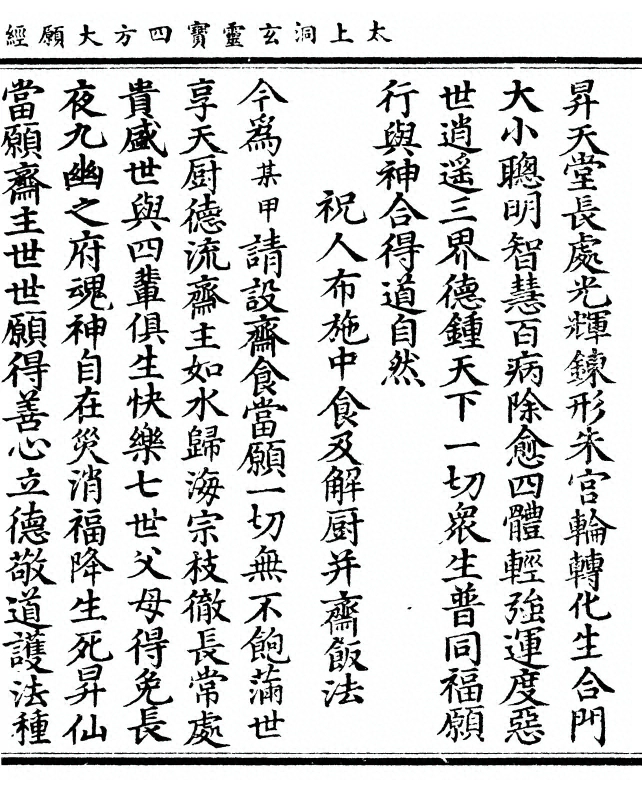 太上洞玄靈寳四方大願經
昇天堂長處光輝鍊形朱宫輪轉化生合門
大小聰明智慧百病除愈四體輕強運度惡
世逍遥三界德鍾天下一切衆生普同福願
行與神合得道自然
祝人布施中食及解厨并齋飯法
今爲某甲請設齋食當願一切無不飽滿世
享天厨德流齋主如水歸海宗枝徹長常處
貴盛世與四輩俱生快樂七世父母得免長
夜九幽之府魂神自在災消福降生死昇仙
當願齋主世世願得善心立德敬道護法種